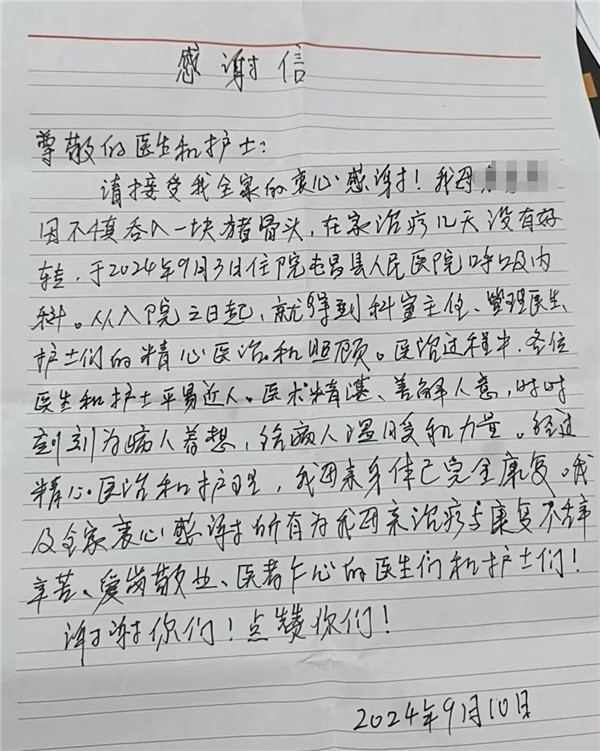 感谢信
尊敬的医生和护士：
请接受我全家的衷心感谢！我母
因不慎吞入一块猪骨头，在家治疗几天没有好
转，于2024年9月3日住院屯昌县人民医院呼吸内
科。从入院之日起，就得到科室主任、管理医生
护士们的精心医治和照顾。医治过程中，各位
医生和护士平易近人。医术精湛、善解人意，时时
刻刻为病人着想，给病人温暖和力量。经过
精心医治和护理，我母亲身体已完全康复。我
及全家衷心感谢所有为我母亲治疗与康复不辞
辛苦、爱岗敬业、医者仁心的医生们和护士们！
谢谢你们！点赞你们！
2024年9月10日